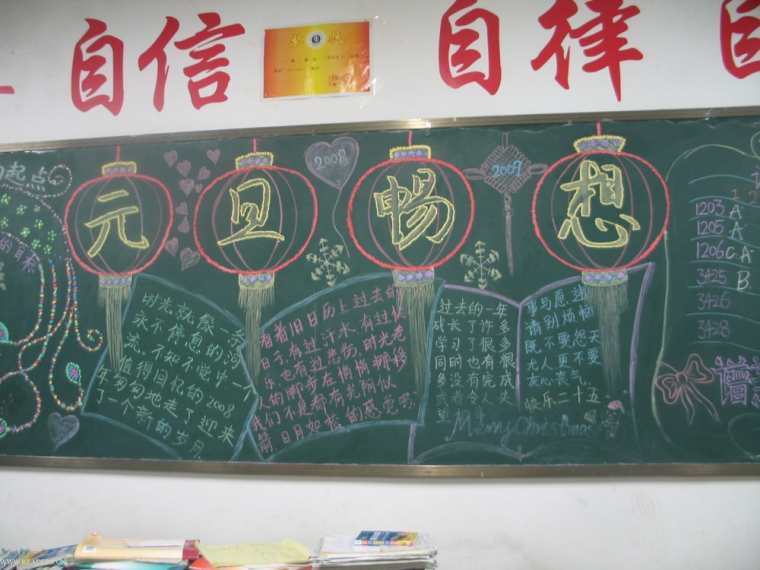 自信 自律 自
奖状
元旦畅想
2008
2009
起点
时光就像一条
永不停息的河
流,不知不觉中一个
值得回忆的2008
年匆匆地走了迎来
了一个新的岁月
看着旧日历上过去的
日子有过汗水,有过欢
乐,也有过悲伤,时光老
人的脚步在悄悄挪移
我们不是都有光阴似
箭日月如梭的感觉吗
过去的一年
成长了许多
学习了很多
同时也有很
多没有完成
事与愿违
请别烦恼
既不要怨天
尤人更不要
灰心丧气。
快乐二十五
Merry Christmas
1203 A
1205 A
1206 C A
3425 B
3426
3428